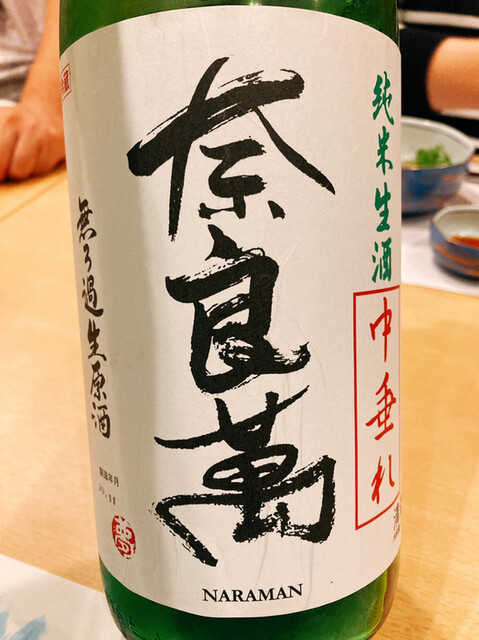 純米生酒
中垂れ
奈良萬
NARAMAN
無ろ過生原酒
醸造年月